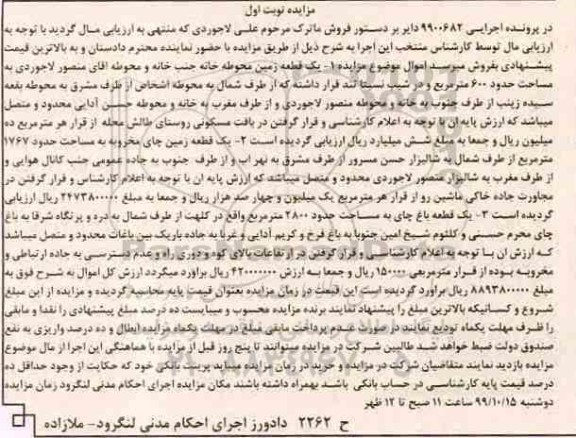 مزایده نوبت اول
در پرونده اجرایی ۹۹۰۰۶۸۲ دایر بر دستور فروش ماترک مرحوم علی لاجوردی که منتهی به ارزیابی مال گردید با توجه به
ارزیابی مال توسط کارشناس منتخب این اجرا به شرح ذیل از طریق مزایده با حضور نماینده محترم دادستان و به بالاترین قیمت
پیشنهادی بفروش میرسد اموال موضوع مزایده ۱- یک قطعه زمین محوطه خانه جنب خانه و محوطه اقای منصور لاجوردی به
مساحت حدود ۶۰۰ مترمربع و در شیب نسبتا تند قرار داشته که از طرف شمال به محوطه اشخاص از طرف مشرق به محوطه بقعه
سیده زینب از طرف جنوب به خانه و محوطه منصور لاجوردی و از طرف مغرب به خانه و محوطه حسن آدابی محدود و متصل
میباشد که ارزش پایه ان با توجه به اعلام کارشناسی و قرار گرفتن در بافت مسکونی روستای طالش محله از قرار هر مترمربع ده
میلیون ریال و جمعا به مبلغ شش میلیارد ریال ارزیابی گردیده است ۲- یک قطعه زمین چای مخروبه به مساحت حدود ۱۷۶۷
مترمربع از طرف شمال به شالیزار حسن مسرور از طرف مشرق به نهر اب و از طرف جنوب به جاده عمومی جنب کانال هوایی و
از طرف مغرب به شالیزار منصور لاجوردی محدود و متصل میباشد که ارزش پایه ان با توجه به اعلام کارشناس و قرار گرفتن در
مجاورت جاده خاکی ماشین رو از قرار هر مترمربع یک میلیون و چهار صد هزار ریال و جمعا به مبلغ ۲۴۷۳۸۰۰۰۰۰ ریال ارزیابی
گردیده است ۳- یک قطعه باغ چای به مساحت حدود ۲۸۰۰ مترمربع واقع در کلهت از طرف شمال به دره و پرتگاه شرقا به باغ
چای محرم حسنی و کلثوم شیخ امین جنوبا به باغ فرخ و کریم آدابی و غربا به جاده باریک بین باغات محدود و متصل میباشد
که ارزش ان با توجه به اعلام کارشناسی و قرار گرفتن در ارتفاعات بالای کوه و دوری راه و عدم دسترسی به جاده ارتباطی و
مخروبه بوده از قرار مترمربعی ۱۵۰۰۰۰ ریال و جمعا به ارزش ۴۲۰۰۰۰۰۰۰ ریال براورد میگردد ارزش کل اموال به شرح فوق به
مبلغ ۸۸۹۳۸۰۰۰۰۰ ریال براورد گردیده است این قیمت در زمان مزایده بعنوان قیمت پایه محاسبه گردیده و مزایده از این مبلغ
شروع و کسانیکه بالاترین مبلغ را پیشنهاد نمایند برنده مزایده محسوب و میبایست ده درصد مبلغ پیشنهادی را نقدا و مابقی
را ظرف مهلت یکماه تودیع نمایند در صورت عدم پرداخت مابقی مبلغ در مهلت یکماه مزایده ابطال و ده درصد واریزی به نفع
صندوق دولت ضبط خواهد شد طالبین شرکت در مزایده میتوانند تا پنج روز قبل از مزایده با هماهنگی این اجرا از مال موضوع
مزایده بازدید نمایند متقاضیان شرکت در مزایده و خرید در زمان مزایده میباید پرینت بانکی خود که حکایت از وجود حداقل ده
درصد قیمت پایه کارشناسی در حساب بانکی باشد بهمراه داشته باشند مکان مزایده اجرای احکام مدنی لنگرود زمان مزایده
دوشنبه ۹۹/۱۰/۱۵ ساعت ۱۱ صبح تا ۱۲ ظهر
ح ۲۲۶۲ دادورز اجرای احکام مدنی لنگرود- ملازاده